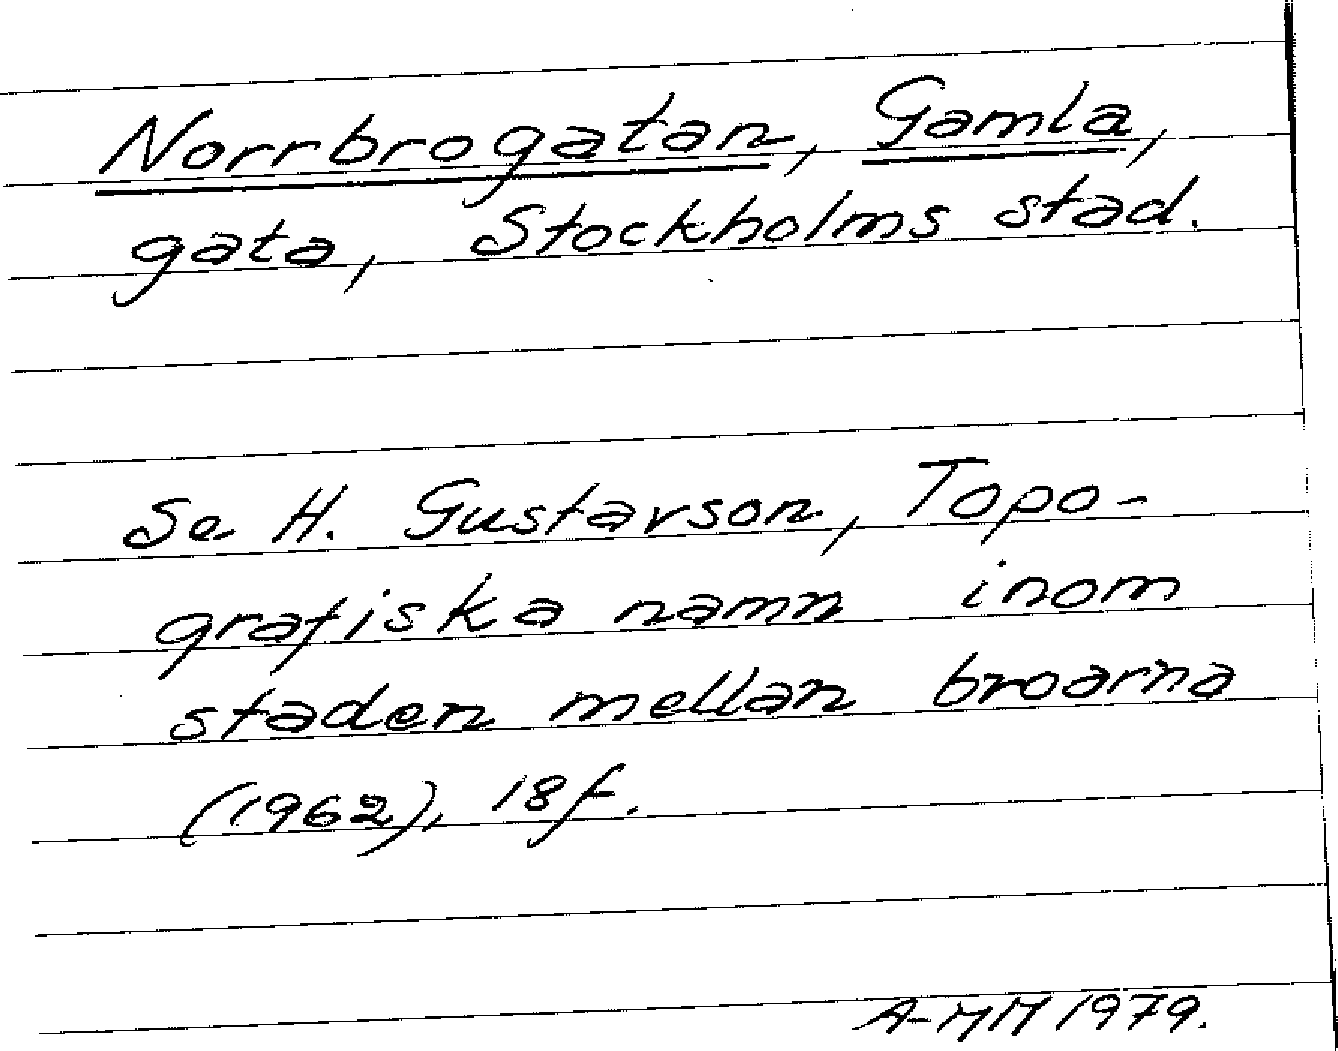 Norrbrogatan, Gamla,
gata, Stockholms stad.
Se H. Gustavson, Topo-
grafiska namn inom
staden mellan broarna
(1962), 18f.
A-MM 1979.